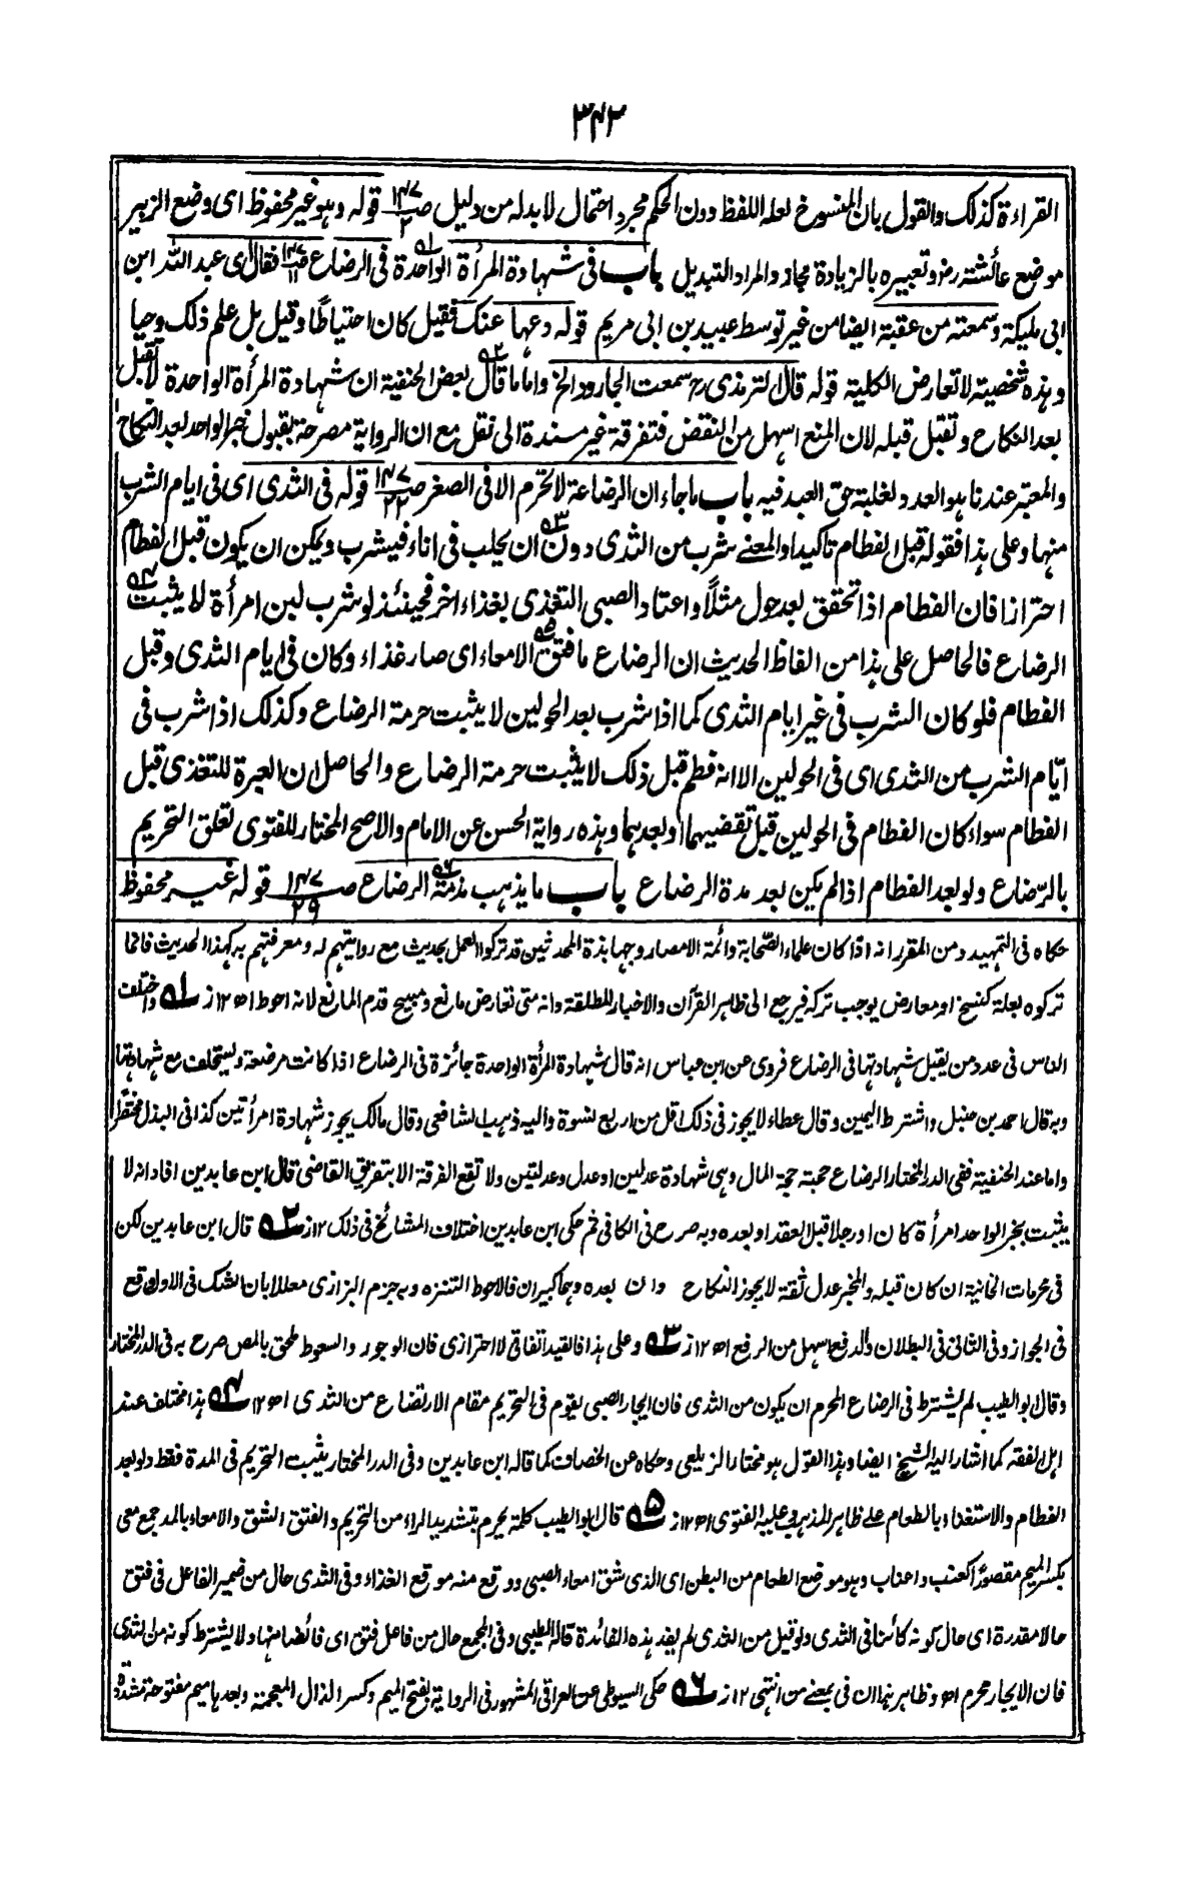 ٣٤٣
القراءة كذلك والقول بان المنسوخ لعله اللفظ دون الحكم مجرد احتمال لا بد له من دليل صـ ١٤٧/٢ قوله وهو غير محفوظ اى وضع الزبير
موضع عائشة رضـ وتعبيره بالزيادة مجاز والمراد التبديل باب فى شهادة المرأة الواحدة فى الرضاع صـ ١٤٧/١١ فقال اى عبد الله ابن
ابى مليكة وسمعته من عقبة ايضا من غير توسط عبيد بن ابى مريم قوله دعها عنك فقيل كان احتياطًا وقيل بل علم ذلك وحيا
وهذه شخصية لا تعارض الكلية قوله قال الترمذى رح سمعت الجارود الخ واما ما قال بعض الحنفية ان شهادة المرأة الواحدة لا تقبل
بعد النكاح وتقبل قبله لان المنع اسهل من النقض فتفرقة غير مسندة الى نقل مع ان الرواية مصرحة بقبول خبر الواحد بعد النكاح
والمعتبر عندنا هو العدد لغلبة حق العبد فيه باب ما جاء ان الرضاعة لا تحرم الا فى الصغر صـ ١٤٧/٢٢ قوله فى الثدى اى فى ايام الشرب
منها وعلى هذا فقوله قبل الفطام تاكيدا والمعنے شرب من الثدى دون ان يحلب فى اناء فيشرب ويمكن ان يكون قبل الفطام
احترازا فان الفطام اذا تحقق بعد حول مثلاً واعتاد الصبى التغذى بغذاء اخر فحينئذ لو شرب لبن امرأة لا يثبت
الرضاع فالحاصل على هذا من الفاظ الحديث ان الرضاع ما فتق الامعاء اى صار غذاء وكان فى ايام الثدى وقبل
الفطام فلو كان الشرب فى غير ايام الثدى كما اذا شرب بعد الحولين لا يثبت حرمة الرضاع وكذلك اذا شرب فى
ايّام الشرب من الثدى اى فى الحولين الا انه فطم قبل ذلك لا يثبت حرمة الرضاع والحاصل ان العبرة للتغذى قبل
الفطام سواء كان الفطام فى الحولين قبل تقضيهما او بعدهما وهذه رواية الحسن عن الامام والاصح المختار للفتوى تعلق التحريم
بالرّضاع ولو بعد الفطام اذا لم يكن بعد مدة الرضاع باب ما يذهب مذمة الرضاع صـ ١٤٧/٢٩ قوله غير محفوظ
حكاه فى التمهيد ومن المقرر انه اذا كان علماء الصّحابة وائمة الامصار وجهابذة المحدثين قد تركوا العمل بحديث مع روايتهم له ومعرفتهم به كهذا الحديث فانما
تركوه بعلة كنسخ او معارض يوجب تركه فيرجع الى ظاهر القرآن والاخبار المطلقة وانه متى تعارض مانع ومبيح قدم المانع لانه احوط اھ ١٢ ز ۱ـه واختلف
الناس فى عدد من يقبل شهادتها فى الرضاع فروى عن ابن عباس انه قال شهادة المرأة الواحدة جائزة فى الرضاع اذا كانت مرضعة ويستحلف مع شهادتها
وبه قال احمد بن حنبل واشترط اليمين وقال عطاء لا يجوز فى ذلك اقل من اربع نسوة واليه ذهب الشافعى وقال مالك يجوز شهادة امرأتين كذا فى البذل مختصرًا
واما عند الحنفية ففى الدر المختار الرضاع حجته حجة المال وهى شهادة عدلين او عدل وعدلتين ولا تقع الفرقة الا بتفريق القاضى قال ابن عابدين افاد انه لا
يثبت بخبر الواحد امرأة كان او رجلا قبل العقد او بعده وبه صرح فى الكافى ثم حكى ابن عابدين اختلاف المشائخ فى ذلك ١٢ ز ۲ـه قال ابن عابدين لكن
فى محرمات الخانية ان كان قبله والمخبر عدل ثقة لا يجوز النكاح وان بعده وهما كبيران فالاحوط التنزه وبه جزم البزازى معللا بان الشك فى الاول وقع
فى الجواز وفى الثانى فى البطلان والدفع اسهل من الرفع اھ ١٢ ز ۳ـه وعلى هذا فالقيد اتفاقى لا احترازى فان الوجور والسعوط ملحق بالمص صرح به فى الدر المختار
وقال ابو الطيب لم يشترط فى الرضاع المحرم ان يكون من الثدى فان ايجار الصبى يقوم فى التحريم مقام الارتضاع من الثدى اھ ١٢ ۴ـه هذا مختلف عند
اهل الفقه كما اشار اليه الشيخ ايضا وهذا القول هو مختار الزيلعى وحكاه عن الخصاف كما قاله ابن عابدين وفى الدر المختار يثبت التحريم فى المدة فقط ولو بعد
الفطام والاستغناء بالطعام علے ظاهر المذهب وعليه الفتوى اھ ١٢ ز ۵ـه قال ابو الطيب كلمة يحرم بتشديد الراء من التحريم والفتق الشق والامعاء بالمد جمع معى
بكسر الميم مقصورًا كعنب واعناب وهو موضع الطعام من البطن اى الذى شق امعاء الصبى ووقع منه موقع الغذاء وفى الثدى حال من ضمير الفاعل فى فتق
حالا مقدرة اى حال كونه كائنا فى الثدى ولو قيل من الثدى لم يفد هذه الفائدة قاله الطيبى وفى المجمع حال من فاعل فتق اى فائضا منها ولا يشترط كونه من الثدى
فان الايجار محرم اھ وظاهر هذا ان فى بمعنے من انتهى ١٢ ز ۶ـه حكى السيوطى عن العراقى المشهور فى الرواية بفتح الميم وكسر الذال المعجمة وبعدها ميم مفتوحة مشددة